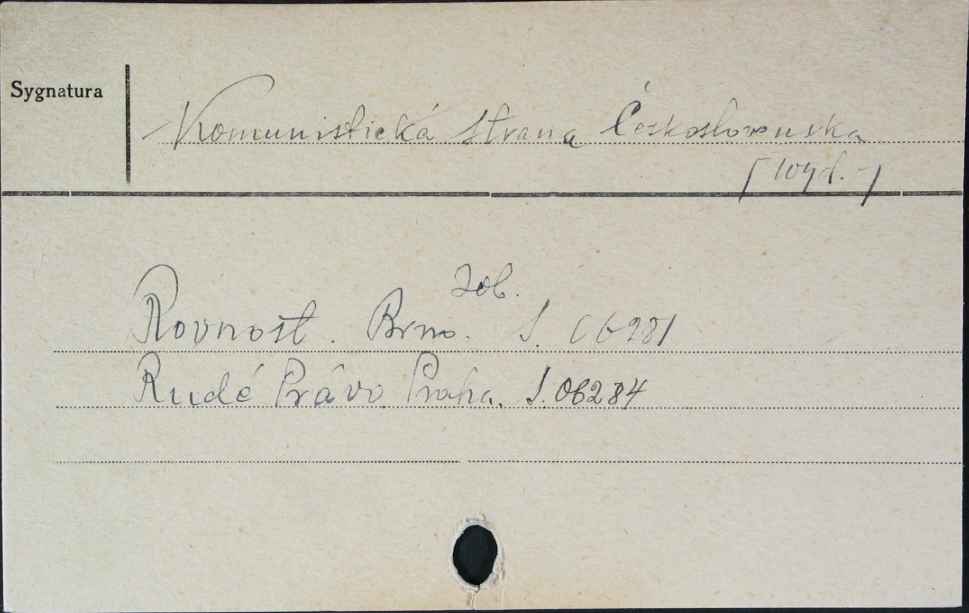 Sygnatura
Komunistická strana Československa
[wyd.-]
Zob.
Rovnost. Brno. S. 06281
Rudé Právo. Praha. S. 06284